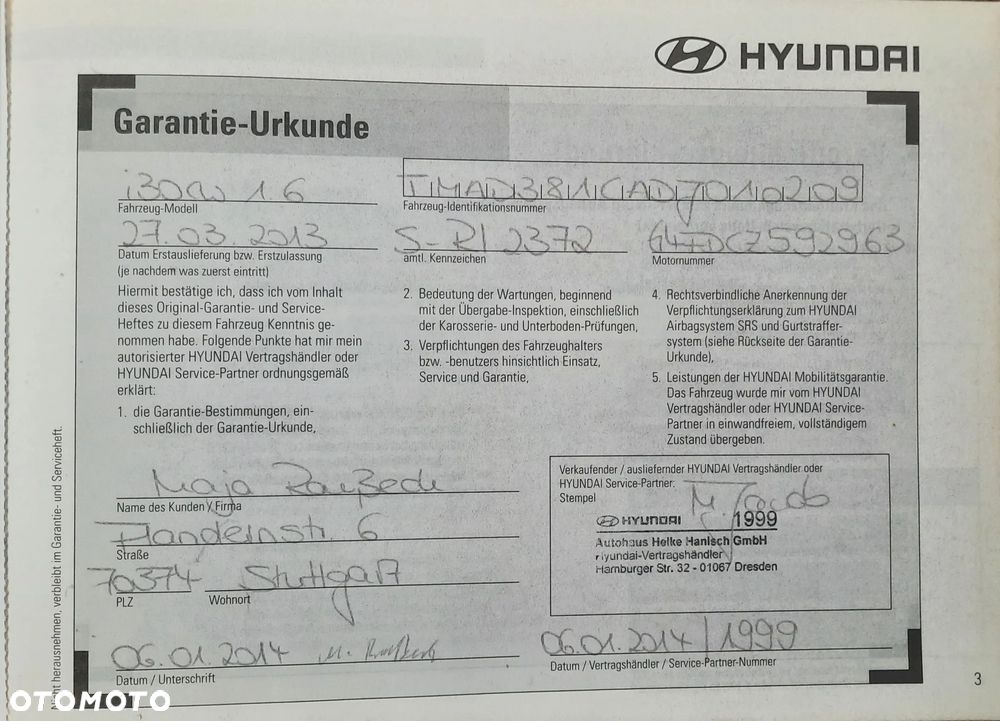 HYUNDAI
Garantie-Urkunde
i30cw 1.6
Fahrzeug-Modell
TMAD381CADJ010209
Fahrzeug-Identifikationsnummer
27.03.2013
Datum Erstauslieferung bzw. Erstzulassung
(je nachdem was zuerst eintritt)
S-RI 2372
amtl. Kennzeichen
G4FDCZ592963
Motornummer
Hiermit bestätige ich, dass ich vom Inhalt
dieses Original-Garantie- und Service-
Heftes zu diesem Fahrzeug Kenntnis ge-
nommen habe. Folgende Punkte hat mir mein
autorisierter HYUNDAI Vertragshändler oder
HYUNDAI Service-Partner ordnungsgemäß
erklärt:
1. die Garantie-Bestimmungen, ein-
schließlich der Garantie-Urkunde,
2. Bedeutung der Wartungen, beginnend
mit der Übergabe-Inspektion, einschließlich
der Karosserie- und Unterboden-Prüfungen,
3. Verpflichtungen des Fahrzeughalters
bzw. -benutzers hinsichtlich Einsatz,
Service und Garantie,
4. Rechtsverbindliche Anerkennung der
Verpflichtungserklärung zum HYUNDAI
Airbagsystem SRS und Gurtstraffer-
system (siehe Rückseite der Garantie-
Urkunde),
5. Leistungen der HYUNDAI Mobilitätsgarantie.
Das Fahrzeug wurde mir vom HYUNDAI
Vertragshändler oder HYUNDAI Service-
Partner in einwandfreiem, vollständigem
Zustand übergeben.
Maja
Name des Kunden / Firma
6
Straße
70374 Stuttgart
PLZ Wohnort
06.01.2014
Datum / Unterschrift
Verkaufender / ausliefernder HYUNDAI Vertragshändler oder
HYUNDAI Service-Partner:
Stempel
HYUNDAI 1999
Autohaus Heike Hanisch GmbH
Hyundai-Vertragshändler
Hamburger Str. 32 - 01067 Dresden
06.01.2014 / 1999
Datum / Vertragshändler / Service-Partner-Nummer
Nicht herausnehmen, verbleibt im Garantie- und Serviceheft.
3
OTOMOTO